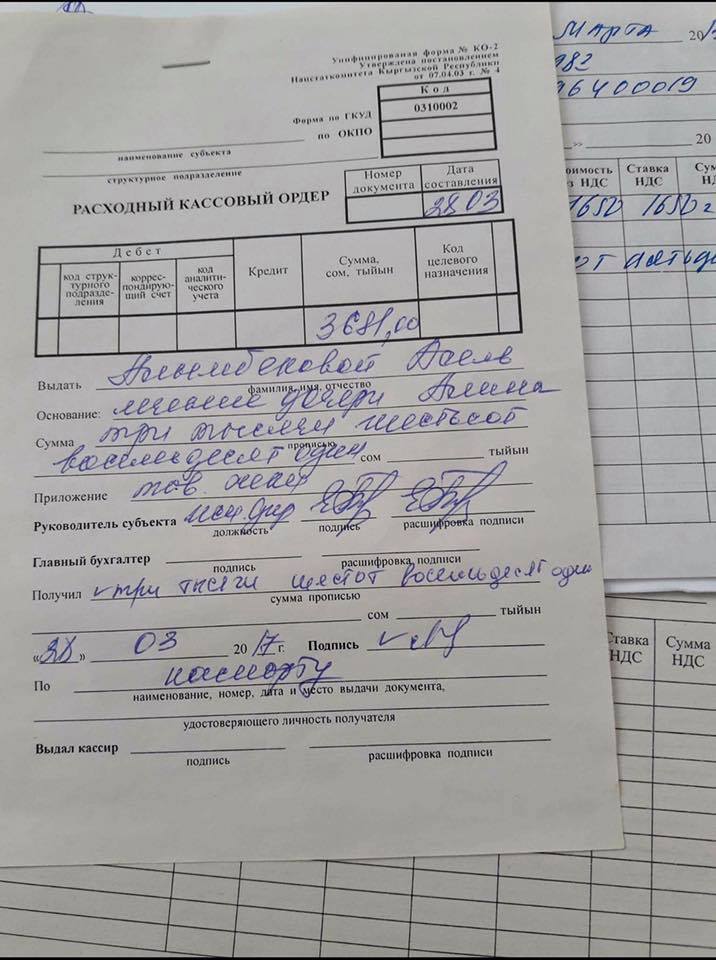 Унифицированая форма № КО-2
Утверждена постановлением
Нацстаткомитета Кыргызской Республики
от 07.04.03 г. № 4
Код
Форма по ГКУД 0310002
по ОКПО
наименование субъекта
структурное подразделение
РАСХОДНЫЙ КАССОВЫЙ ОРДЕР
Номер документа
Дата составления
28 03
Дебет
код струк-
турного
подразде-
ления
коррес-
пондирую-
щий счет
код
аналити-
ческого
учета
Кредит
Сумма,
сом, тыйын
Код
целевого
назначения
3681,00
Выдать
фамилия, имя, отчество
Основание: лечение дочери
Сумма три тысячи шестьсот
прописью
восемьдесят один сом тыйын
Приложение тов.
Руководитель субъекта
должность подпись расшифровка подписи
Главный бухгалтер
подпись расшифровка подписи
Получил три тысячи шестот восемьдесят один
сумма прописью
сом тыйын
«28» 03 2017 г. Подпись
По паспорту
наименование, номер, дата и место выдачи документа,
удостоверяющего личность получателя
Выдал кассир
подпись расшифровка подписи
Марта 20
082
96400019
20
Ставка
НДС
1650 1650
Ставка
НДС
Сумма
НДС